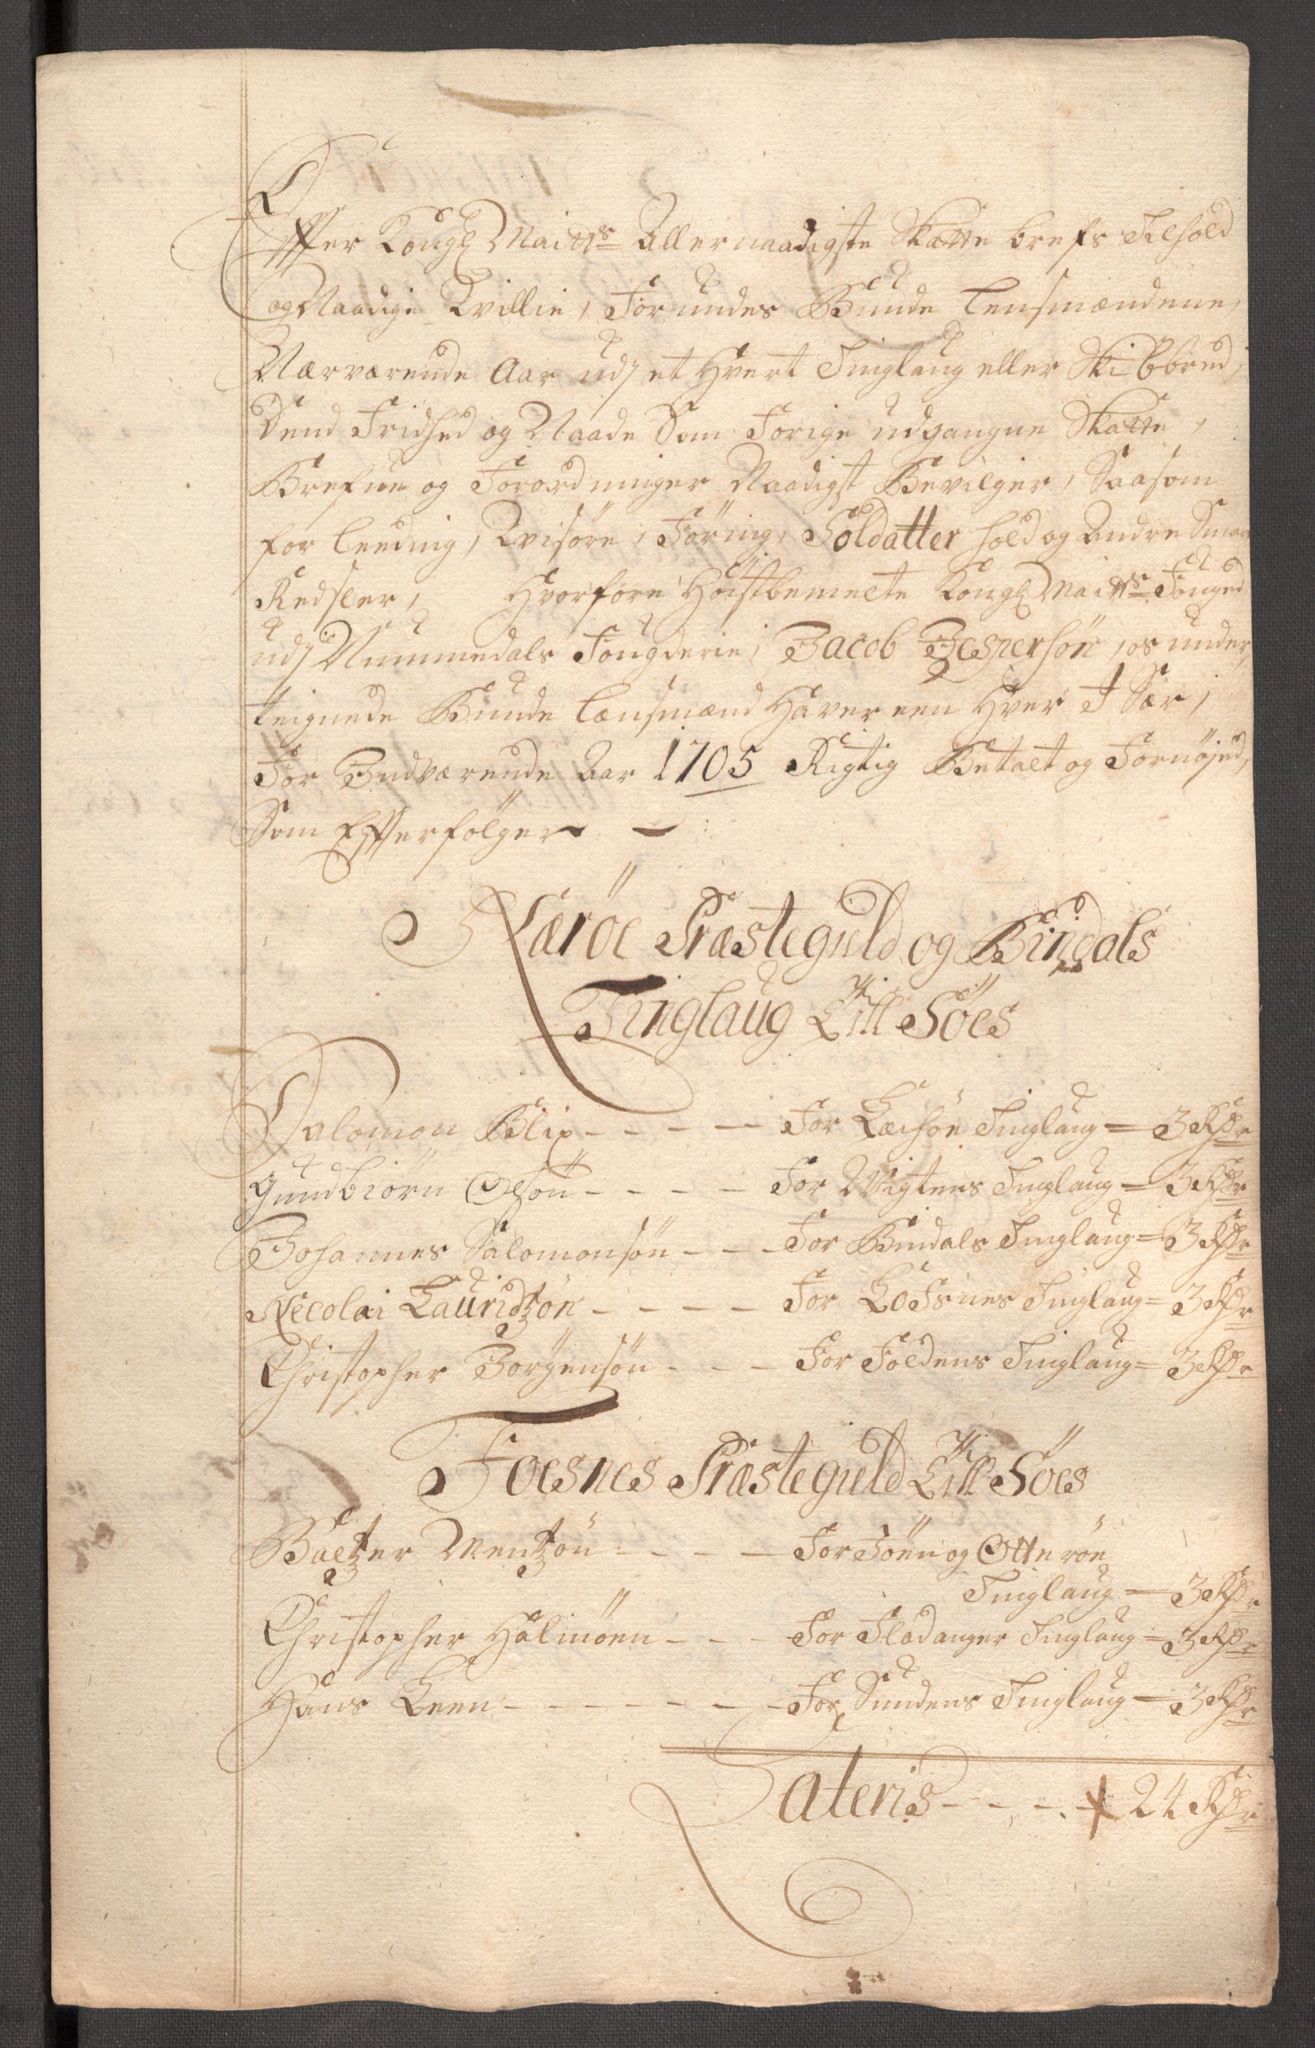 Effter Kongl Maitts Allernaadigste Skatte brefs Tilhold
og Naadige Willie, Forundes Bunde Lensmændene,
Nærværende Aar udj et Hvert Tinglaug eller Skibbred,
Dend Fridhed og Naade Som Forige udgangne Skatte,
Brefue og Forordninger Naadigst Bevilger, Saasom
for Leeding, Wisöre, Föring, Soldatter hold og Andre Smaa
Redsler, Hvorfore Höistbemelte Kongl Maitts Fouged
udj Nummedals Fougderie, Jacob Jespersön, os under
teignede Bunde Lænsmænd Haver een Hver J Sær,
For Indværende Aar 1705 Rigtig Betalt og Fornöjed,
Som Effterfölger
Næröe Præsteguld og Bindals
Tinglaug Till Söes
Salomon Blix - - - - For Leköe Tinglaug = 3 Rdr
Gundbiörn Olsön - - - - For Wigtens Tinglaug = 3 Rdr
Johannes Salomonsön - - - For Bindals Tinglaug = 3 Rdr
Nicolai Lauridzön - - - - For Lofsnes Tinglaug = 3 Rdr
Christopher Jörgensön - - - For Foldens Tinglaug = 3 Rdr
Foesnes Præsteguld Till Söes
Baltzer Mentzön - - - - For Jöen og Otteröe
Tinglaug = 3 Rdr
Christopher Halmöen - - - For Fladanger Tinglaug = 3 Rdr
Hans Leen - - - - - - For Sundens Tinglaug = 3 Rdr
Lateris - - - 24 Rdr